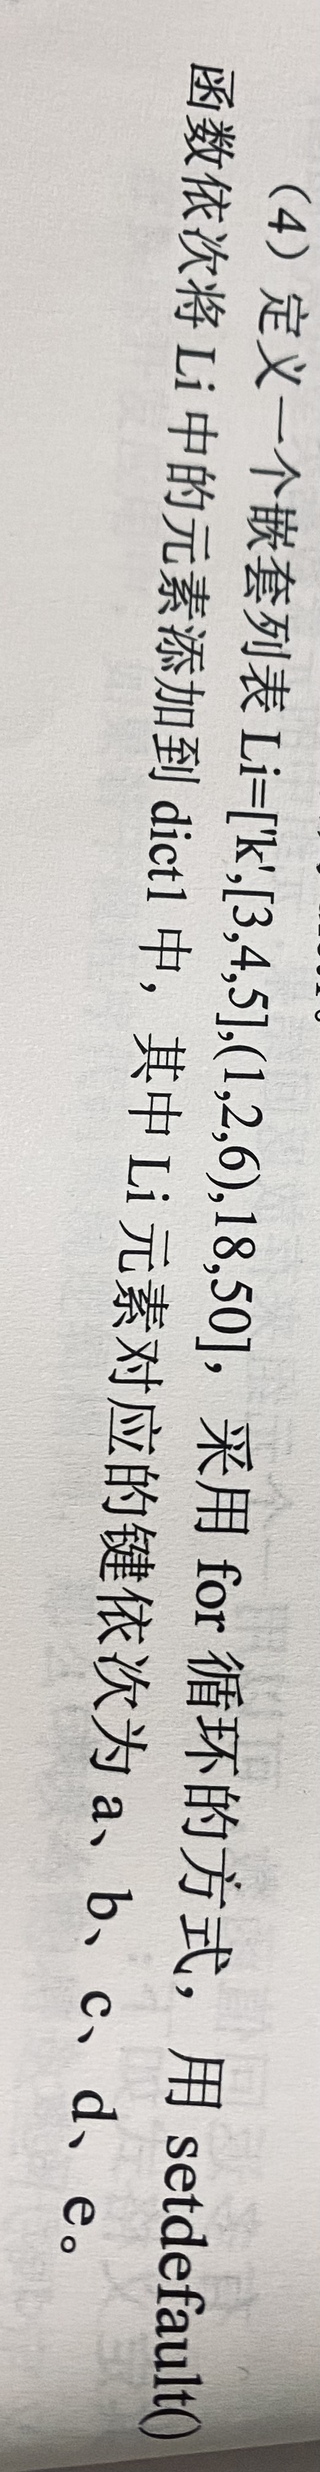 （4）定义一个嵌套列表 Li=['k',[3,4,5],(1,2,6),18,50]，采用 for 循环的方式，用 setdefault()
函数依次将 Li 中的元素添加到 dict1 中，其中 Li 元素对应的键依次为 a、b、c、d、e。